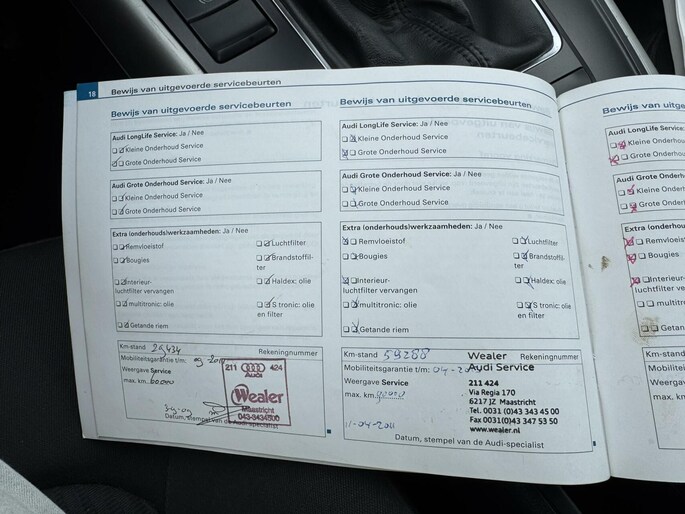 18 Bewijs van uitgevoerde servicebeurten
Bewijs van uitgevoerde servicebeurten
Audi LongLife Service: Ja / Nee
Kleine Onderhoud Service
Grote Onderhoud Service
Audi Grote Onderhoud Service: Ja / Nee
Kleine Onderhoud Service
Grote Onderhoud Service
Extra (onderhouds)werkzaamheden: Ja / Nee
Remvloeistof
Luchtfilter
Bougies
Brandstoffil-
ter
Interieur-
luchtfilter vervangen
Haldex: olie
multitronic: olie
S tronic: olie
en filter
Getande riem
Km-stand 29434
Rekeningnummer
Mobiliteitsgarantie t/m:
Weergave Service
max. km.
211 Audi 424
Wealer
Maastricht
043-3434500
Datum, stempel van de Audi-specialist
Bewijs van uitgevoerde servicebeurten
Audi LongLife Service: Ja / Nee
Kleine Onderhoud Service
Grote Onderhoud Service
Audi Grote Onderhoud Service: Ja / Nee
Kleine Onderhoud Service
Grote Onderhoud Service
Extra (onderhouds)werkzaamheden: Ja / Nee
Remvloeistof
Luchtfilter
Bougies
Brandstoffil-
ter
Interieur-
luchtfilter vervangen
Haldex: olie
multitronic: olie
S tronic: olie
en filter
Getande riem
Km-stand 59288
Rekeningnummer
Mobiliteitsgarantie t/m: 04-20
Weergave Service
max. km.
Wealer
Audi Service
211 424
Via Regia 170
6217 JZ Maastricht
Tel. 0031 (0)43 343 45 00
Fax 0031(0)43 347 53 50
www.wealer.nl
11-04-2011
Datum, stempel van de Audi-specialist
Bewijs van uitge
Audi LongLife Service:
Kleine Onderhoud
Grote Onderhoud
Audi Grote Onderhou
Kleine Onderho
Grote Onderho
Extra (onderhou
Remvloeisto
Bougies
Interieur-
luchtfilter ver
multitroni
Getande
Km-stand
Mobiliteits
Weergave
max. km
Datu